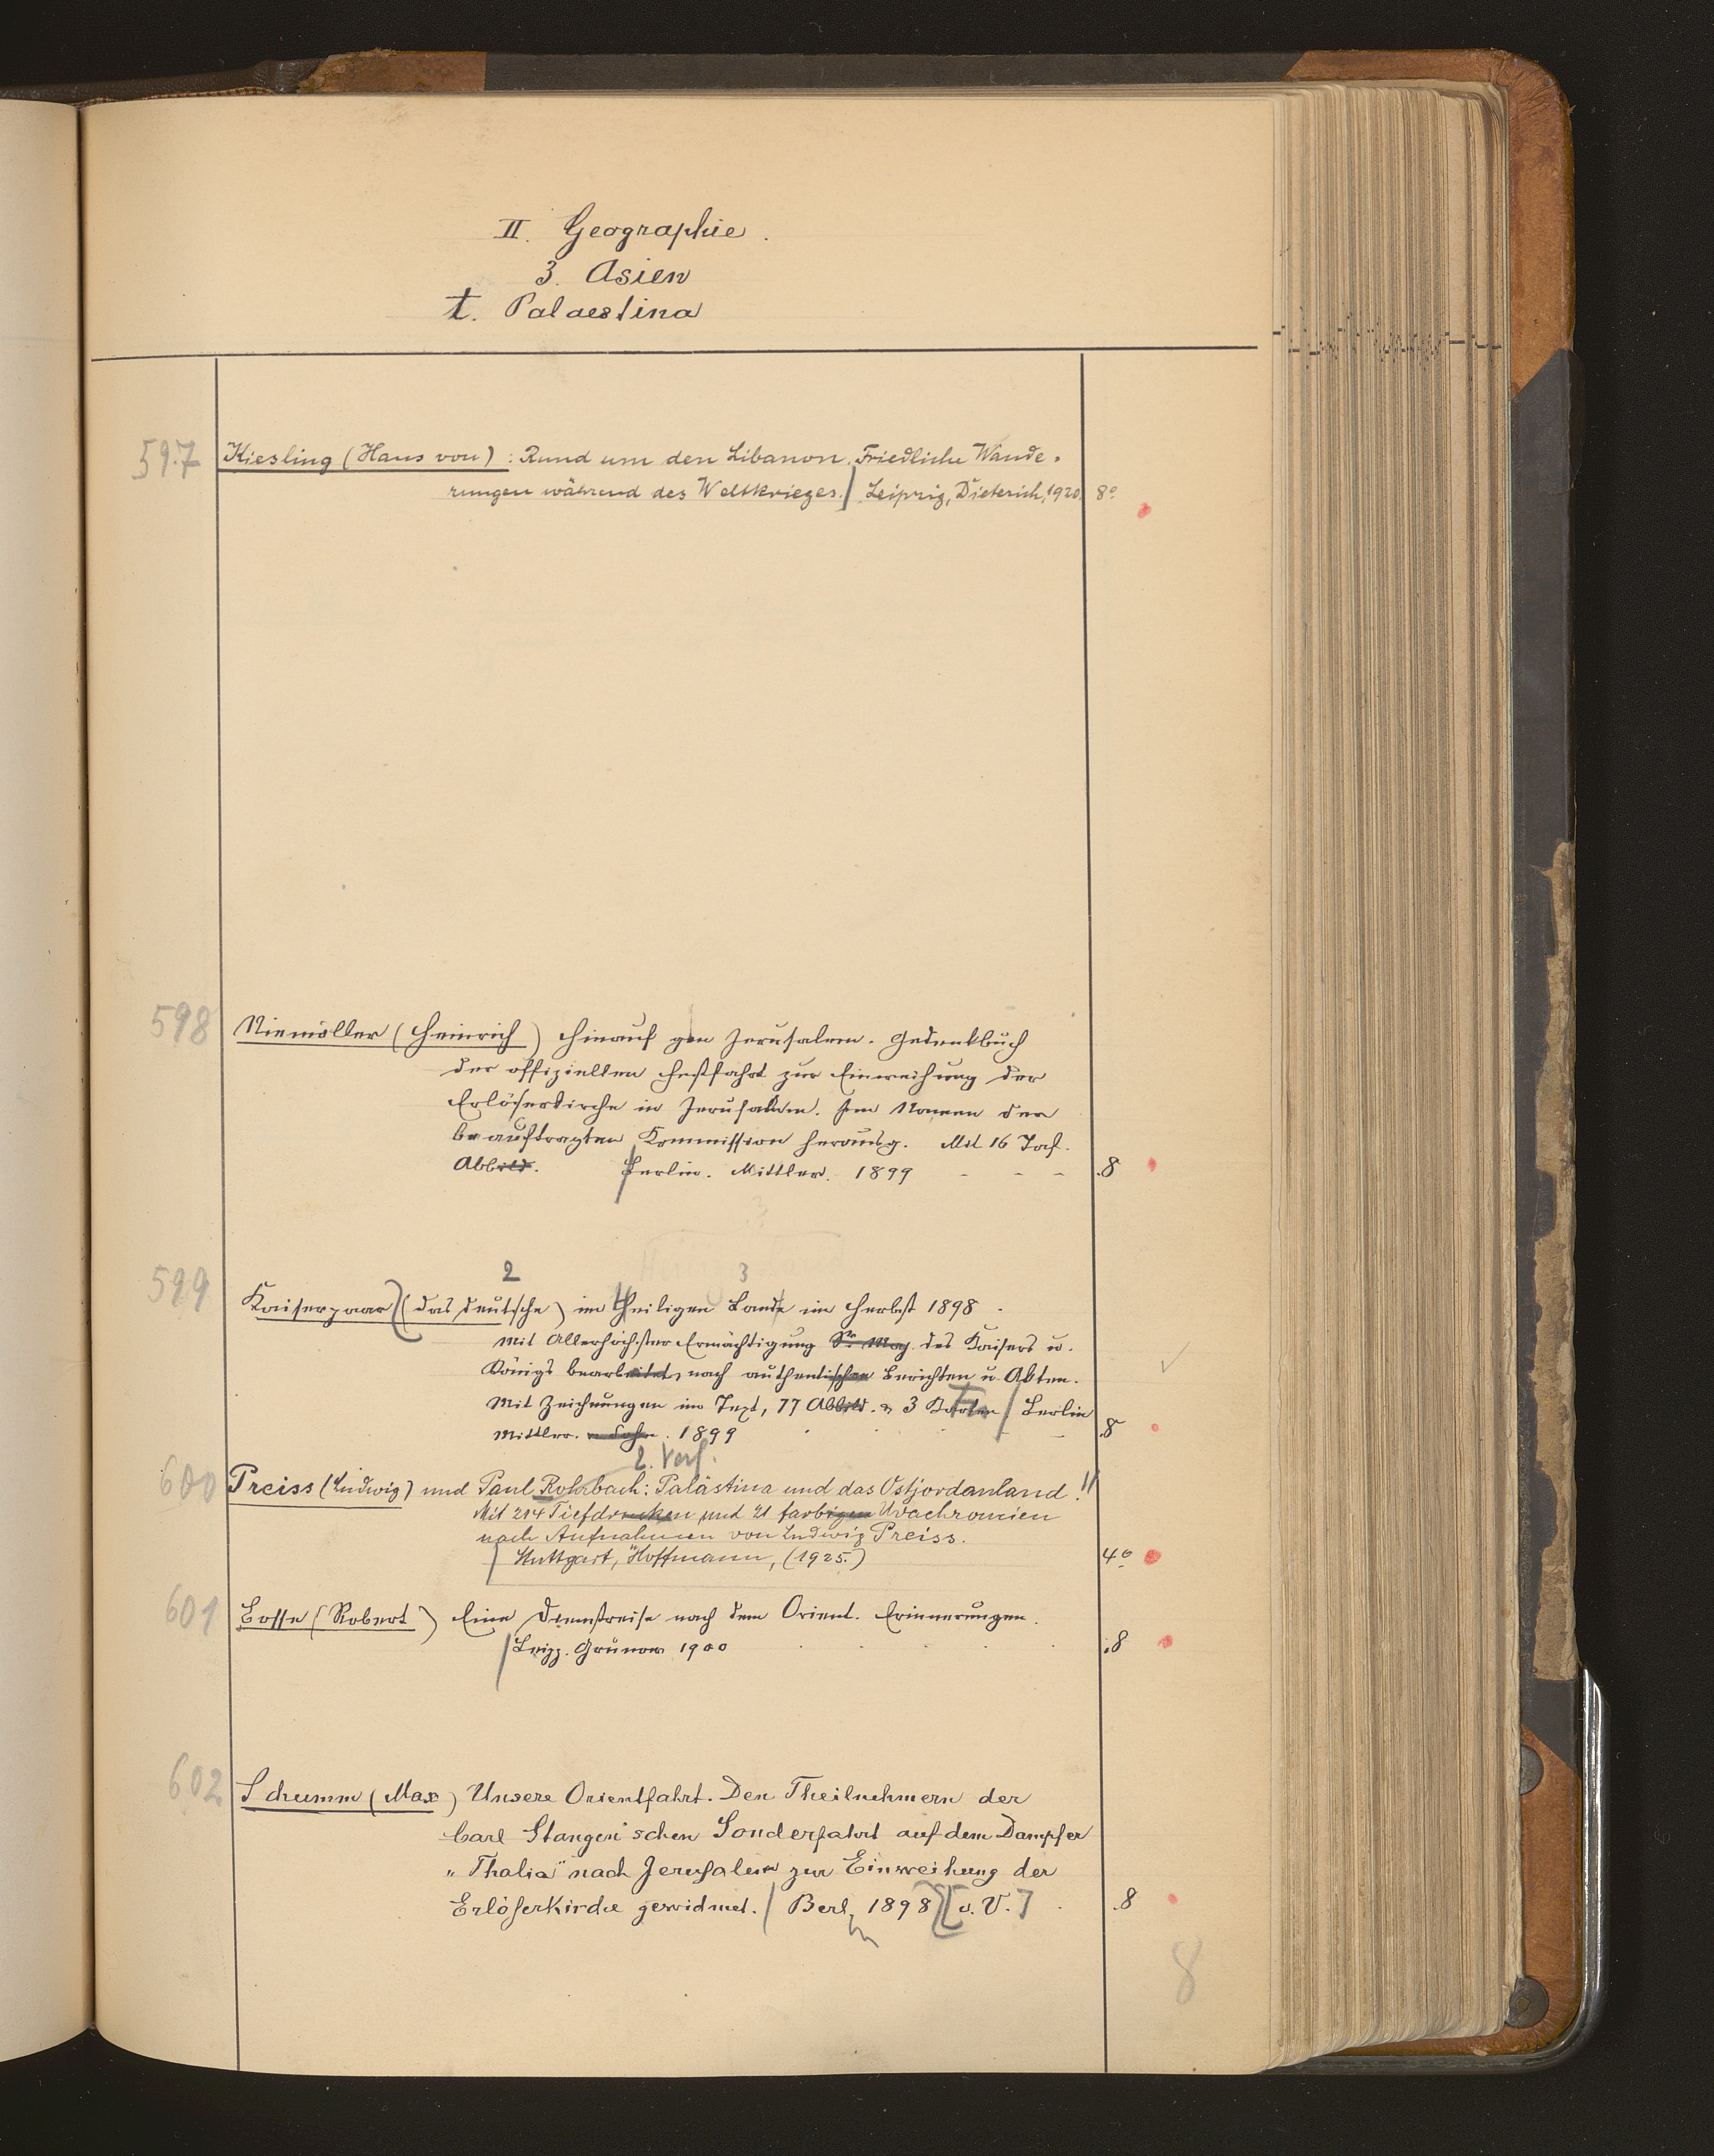 II. Geographie.
3. Asien
t. Palaestina
597 Kiesling (Hans von): Rund um den Libanon. Friedliche Wande-
rungen während des Weltkrieges. Leipzig, Dieterich, 1920. 8°
598 Niemöller (Heinrich) Hinauf gen Jerusalem. Gedenkbuch
der offiziellen Festfahrt zur Einweihung der
Erlöserkirche in Jerusalem. Im Namen der
beauftragten Kommission herausg. Mit 16 Taf.
Abbild. Berlin. Mittler. 1899 - - - 8
2 3
599 Kaiserpaar (das deutsche) im heiligen Lande im Herbst 1898.
Mit Allerhöchster Ermächtigung Sr. Maj. des Kaisers u.
Königs bearbeitet, nach authentischen Berichten u. Akten.
Mit Zeichnungen im Text, 77 Abbild. & 3 Karten / Berlin
Mittler. u Sohn. 1899 8
2. Verf.
600 Preiss (Ludwig) und Paul Rohrbach: Palästina und das Ostjordanland. !!
Mit 214 Tiefdrucken und 21 farbigen Uvachromien
nach Aufnahmen von Ludwig Preiss.
Stuttgart, Hoffmann, (1925.) 4°
601 Bosse (Robert) Eine Dienstreise nach dem Orient. Erinnerungen.
Leipz. Grunow 1900 8
602 Schumm (Max) Unsere Orientfahrt. Den Theilnehmern der
Carl Stangen'schen Sonderfahrt auf dem Dampfer
„Thalia" nach Jerusalem zur Einweihung der
Erlöserkirche gewidmet. / Berl. 1898 [o. V.] 8
8